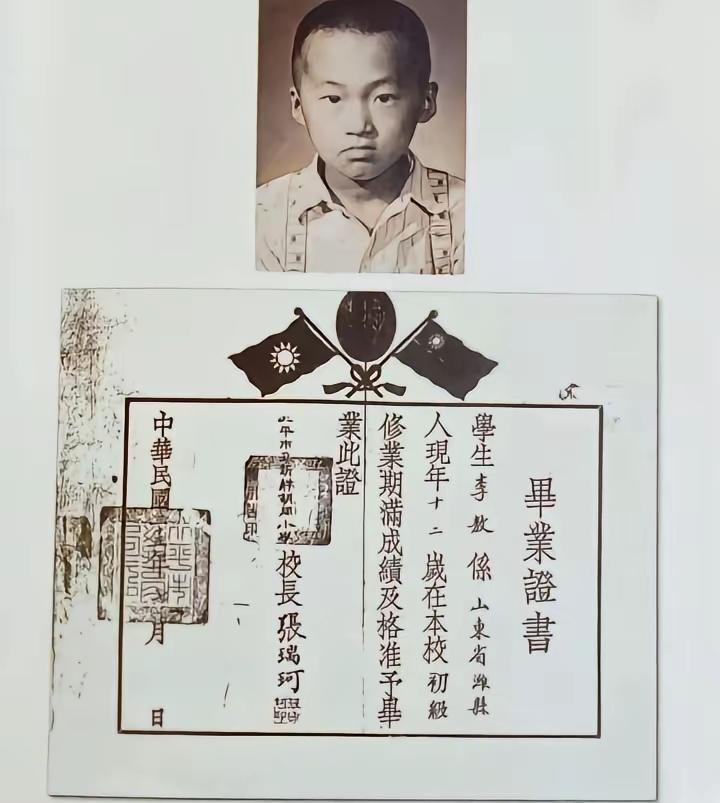 畢業證書
學生李敖係山東省濰縣
人現年十二歲在本校初級
修業期滿成績及格准予畢
業此證
小學校長張瑞珂
中華民國 年 月 日